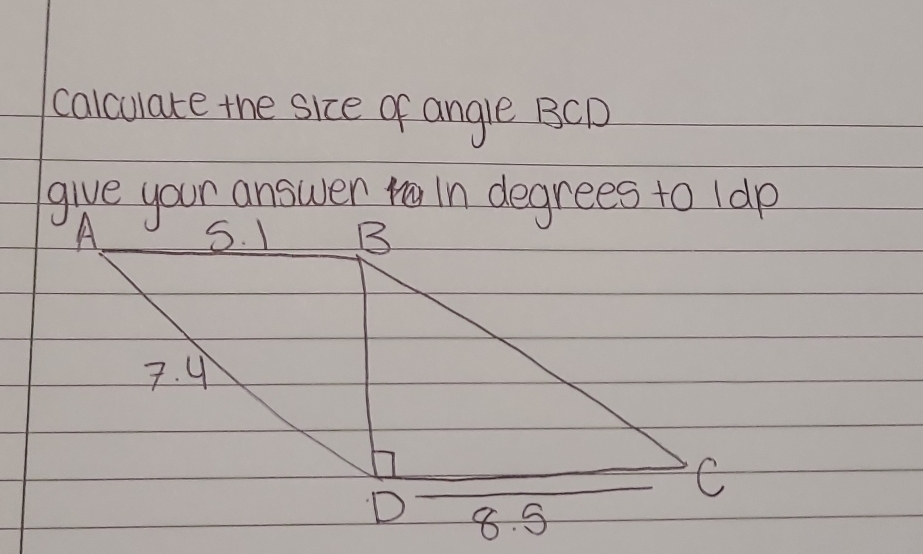 calculate the size of angle BCD
give your answer in degrees to 1dp
A 5.1 B
7.4
D C
8.5